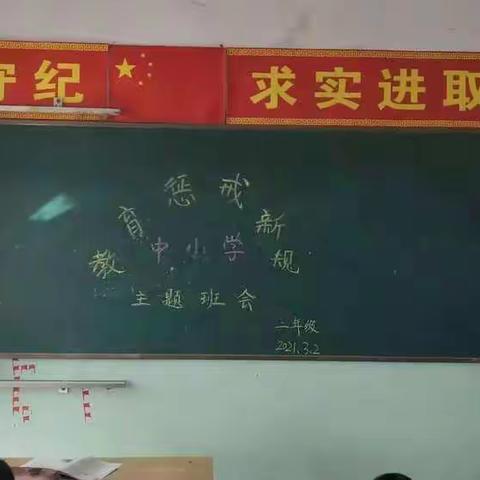 守纪 求实进取
教育惩戒新规
中小学
主题班会
二年级
2021.3.2